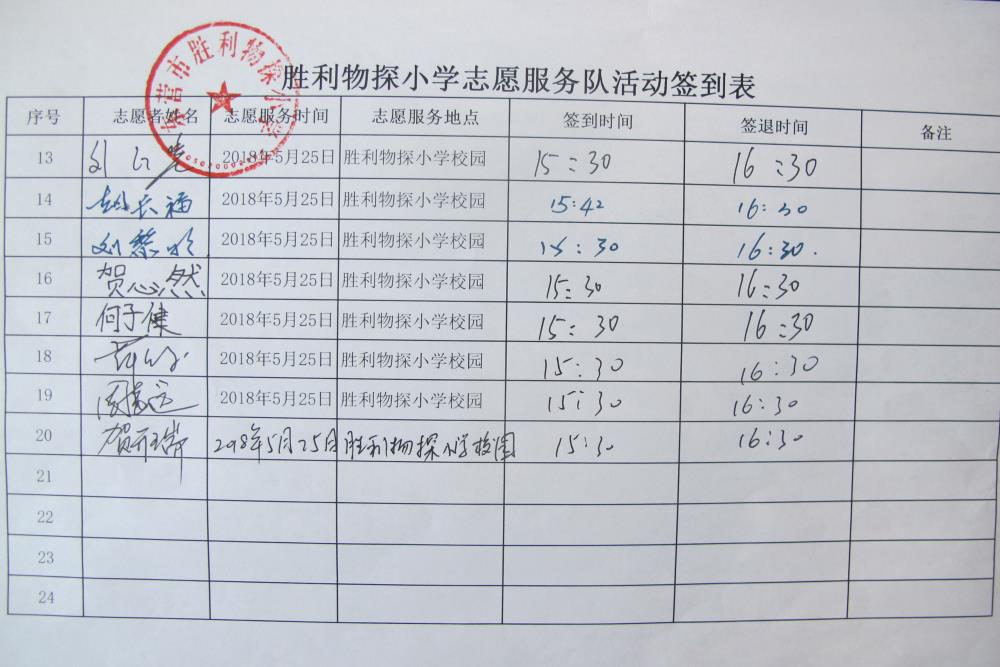 东营市胜利物探小学
胜利物探小学志愿服务队活动签到表
序号 志愿者姓名 志愿服务时间 志愿服务地点 签到时间 签退时间 备注
13 刘 2018年5月25日 胜利物探小学校园 15:30 16:30
14 胡长福 2018年5月25日 胜利物探小学校园 15:42 16:30
15 刘 2018年5月25日 胜利物探小学校园 15:30 16:30.
16 贺心然 2018年5月25日 胜利物探小学校园 15:30 16:30
17 何子健 2018年5月25日 胜利物探小学校园 15:30 16:30
18 2018年5月25日 胜利物探小学校园 15:30 16:30
19 2018年5月25日 胜利物探小学校园 15:30 16:30
20 贺 2018年5月25日 胜利物探小学校园 15:30 16:30
21
22
23
24